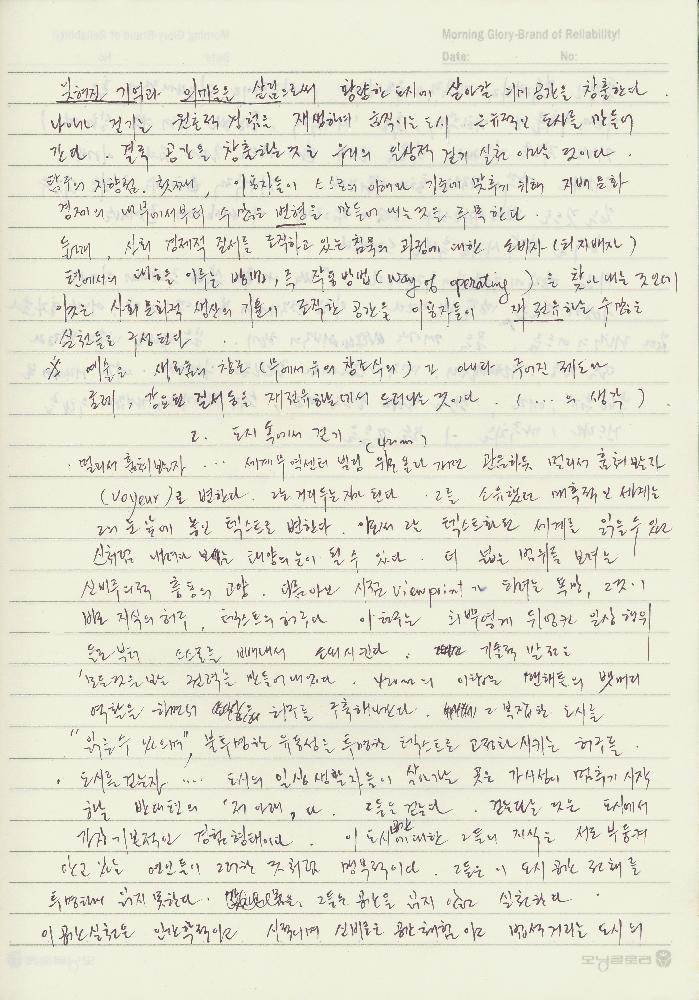 Morning Glory-Brand of Reliability!
Date: No:
잊혀진 기억과 의미들을 살림으로써 황량한 도시에 살아갈 의미 공간을 창출한다.
나에게 걷기는 원초적 경험을 재생하며 움직이는 도시 은유적인 도시를 만들어
간다. 결국 공간을 창출하는 것은 우리의 일상적 걷기 실천 이라는 것이다.
탐구의 지향점. 첫째, 이용자들이 스스로의 이해와 기준에 맞추기 위해 지배 문화
경제의 내부에서부터 수많은 변형을 만들어 내는 것을 주목한다.
둘째, 사회 경제적 질서를 조직하고 있는 침묵의 과정에 대한 소비자(피지배자)
편에서의 대응을 이루는 방법, 즉 작용방법(way of operating)을 찾아내는 것으로
이것은 사회문화적 생산의 기술이 조직한 공간을 이용자들이 재전유하는 수많은
실천들로 구성된다.
※ 예술은 새로움의 창조(무에서 유의 창조식의)가 아니라 주어진 제도와
강요된 질서 등을 재전유하는데서 드러나는 것이다. (....의 생각)
2. 도시 속에서 걷기
· 멀리서 훔쳐보는자 ... 세계무역센터 빌딩 위로 올라가면 관음하듯 멀리서 훔쳐보는자
(420m)
(voyeur)로 변한다. 그는 거리두는 자가 된다. 그를 소유했던 매혹적인 세계는
그의 눈 앞에 놓인 텍스트로 변한다. 이로써 그는 텍스트화된 세계를 읽을 수 있고
신처럼 내려다 보는 태양의 눈이 될 수 있다. 더 넓은 범위를 보려는
신비주의적 충동의 고양. 시점 viewpoint가 되려는 욕망, 그것이
바로 지식의 허구, 텍스트의 허구다. 이 허구는 빽빽하게 뒤엉킨 일상 행위
들로부터 스스로를 빼내서 소외시킨다. 기술적 발전은
'모든 것을 보는 권력'을 만들어 내었다. 420m의 이 맨해튼의 뱃머리
역할을 하면서 허구를 구축해 간다. 그 복잡한 도시를
"읽을 수 있으며", 불투명한 유동성을 투명한 텍스트로 고정화시키는 허구를.
· 도시를 걷는자 .... 도시의 일상 생활자들이 살아가는 곳은 가시성이 멈추기 시작
하는 반대편의 '저 아래'다. 그들은 걷는다. 걷는다는 것은 도시에서
가장 기본적인 경험 형태이다. 이 도시공간에 대한 그들의 지식은 서로 부둥켜
안고 있는 연인들이 그러한 것처럼 맹목적이다. 그들은 이 도시 공간 전체를
투명하게 읽지 못한다. 그들은 공간을 읽지 않고 실천한다.
이 공간 실천은 인간학적이고 시적이며 신비로운 공간체험이고 법석거리는 도시의
모닝글로리